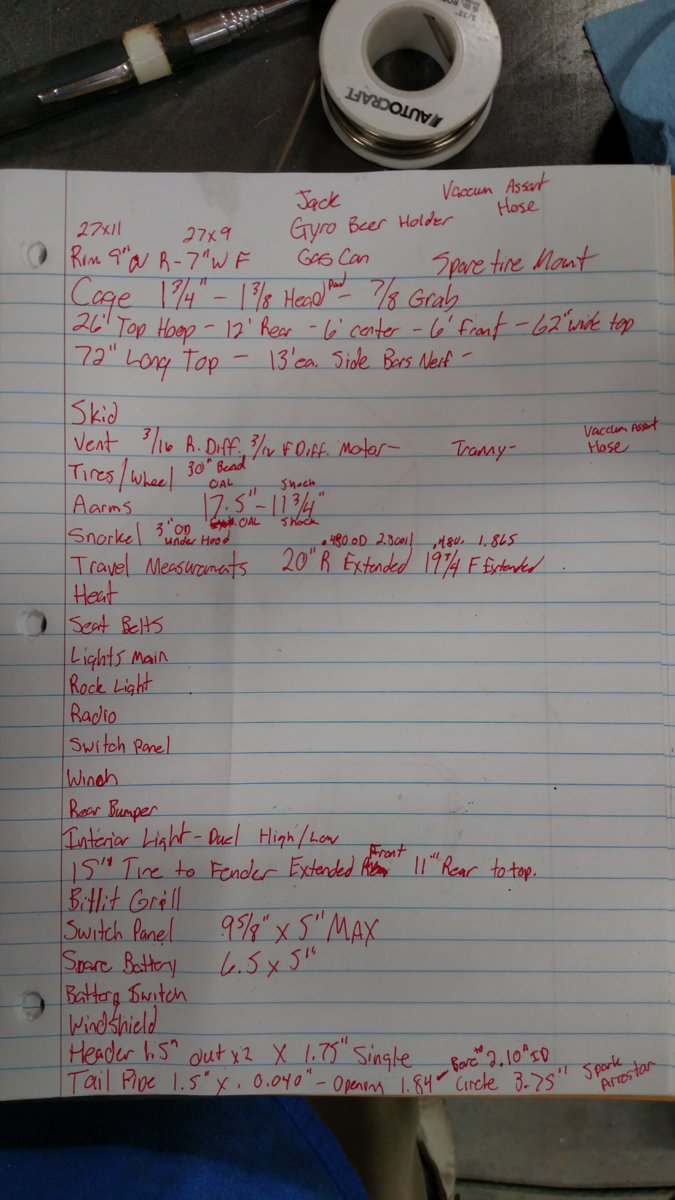 AUTOCRAFT
Jack
Vaccum Assart
Hose
27x11 27x9 Gyro Beer Holder
Rim 9"W R-7"W F Gas Can Spare tire Mount
Cage 1 3/4" - 1 3/8 Head Pad - 7/8 Grab
26' Top Hoop - 12' Rear - 6' center - 6' front - 62" wide top
72" Long Top - 13' ea. Side Bars Nerf -
Skid
Vent 3/16 R. Diff. 3/16 F Diff. Motor- Tranny- Vaccum Assart
Hose
Tires/Wheel 30" Bead
OAL Shock
Aarms 17.5" - 11 3/4"
Snorkel 3" OD under Hood OAL Shock
.480 OD 2. .480. 1.865
Travel Measuromats 20" R Extended 19 3/4 F Extended
Heat
Seat Belts
Lights Main
Rock Light
Radio
Switch Panel
Winch
Rear Bumper
Interior Light - Duel High/Low
15" Tire to Fender Extended Front 11" Rear to top.
Billit Grill
Switch Panel 9 5/8" x 5" MAX
Spare Battery 6.5 x 5"
Battery Switch
Windshield
Header 1.5" out x2 X 1.75" Single
Tail Pipe 1.5" x. 0.040" - Opening 1.84 - Bore to 2.10" ID
Circle 3.75" Spark
Arrostar